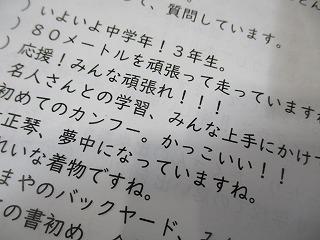 て、質問しています。
)いよいよ中学年！３年生。
)８０メートルを頑張って走っていますね
)応援！みんな頑張れ！！！
名人さんとの学習、みんな上手にかけ
初めてのカンフー。かっこいい！！
大正琴、夢中になっていますね。
れいな着物ですね。
まやのバックヤード、み
の書初め